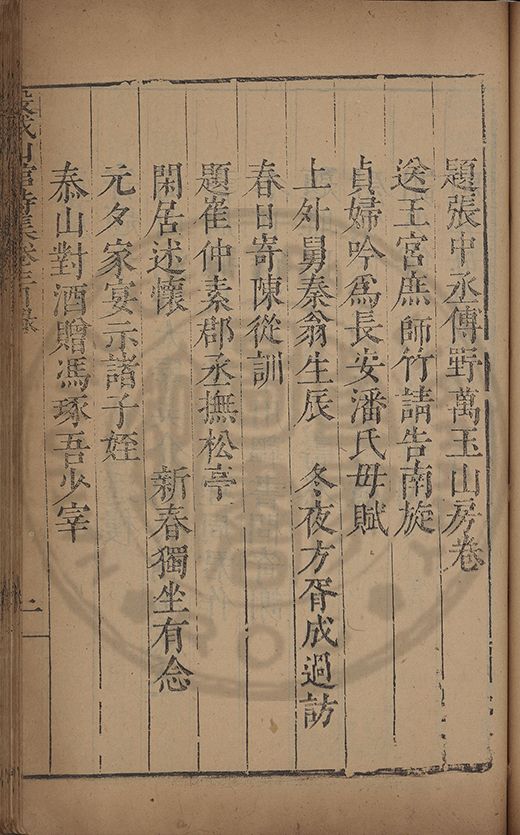 題張中丞傅野萬玉山房卷
送王宮庶師竹請告南旋
貞婦吟爲長安潘氏母賦
上外舅秦翁生辰　冬夜方胥成過訪
春日寄陳從訓
題崔仲素郡丞撫松亭
閑居述懷　新春獨坐有念
元夕家宴示諸子姪
泰山對酒贈馮琢吾少宰